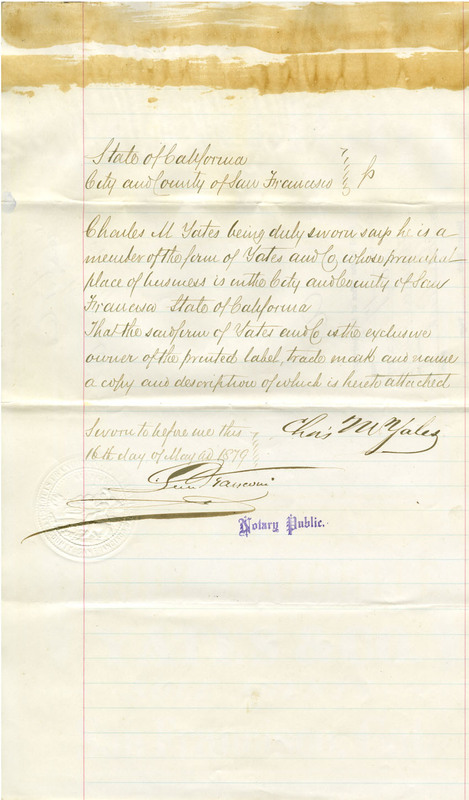 State of California
City and County of San Francisco } ss
Charles M Yates being duly sworn says he is a
member of the firm of Yates and Co, whose principal
place of business is in the City and County of San
Francisco State of California
That the said firm of Yates and Co, is the exclusive
owner of the printed label, trade mark and name
a copy and description of which is hereto attached
Sworn to before me this
16th day of May AD 1879
Chas M Yates
Notary Public.